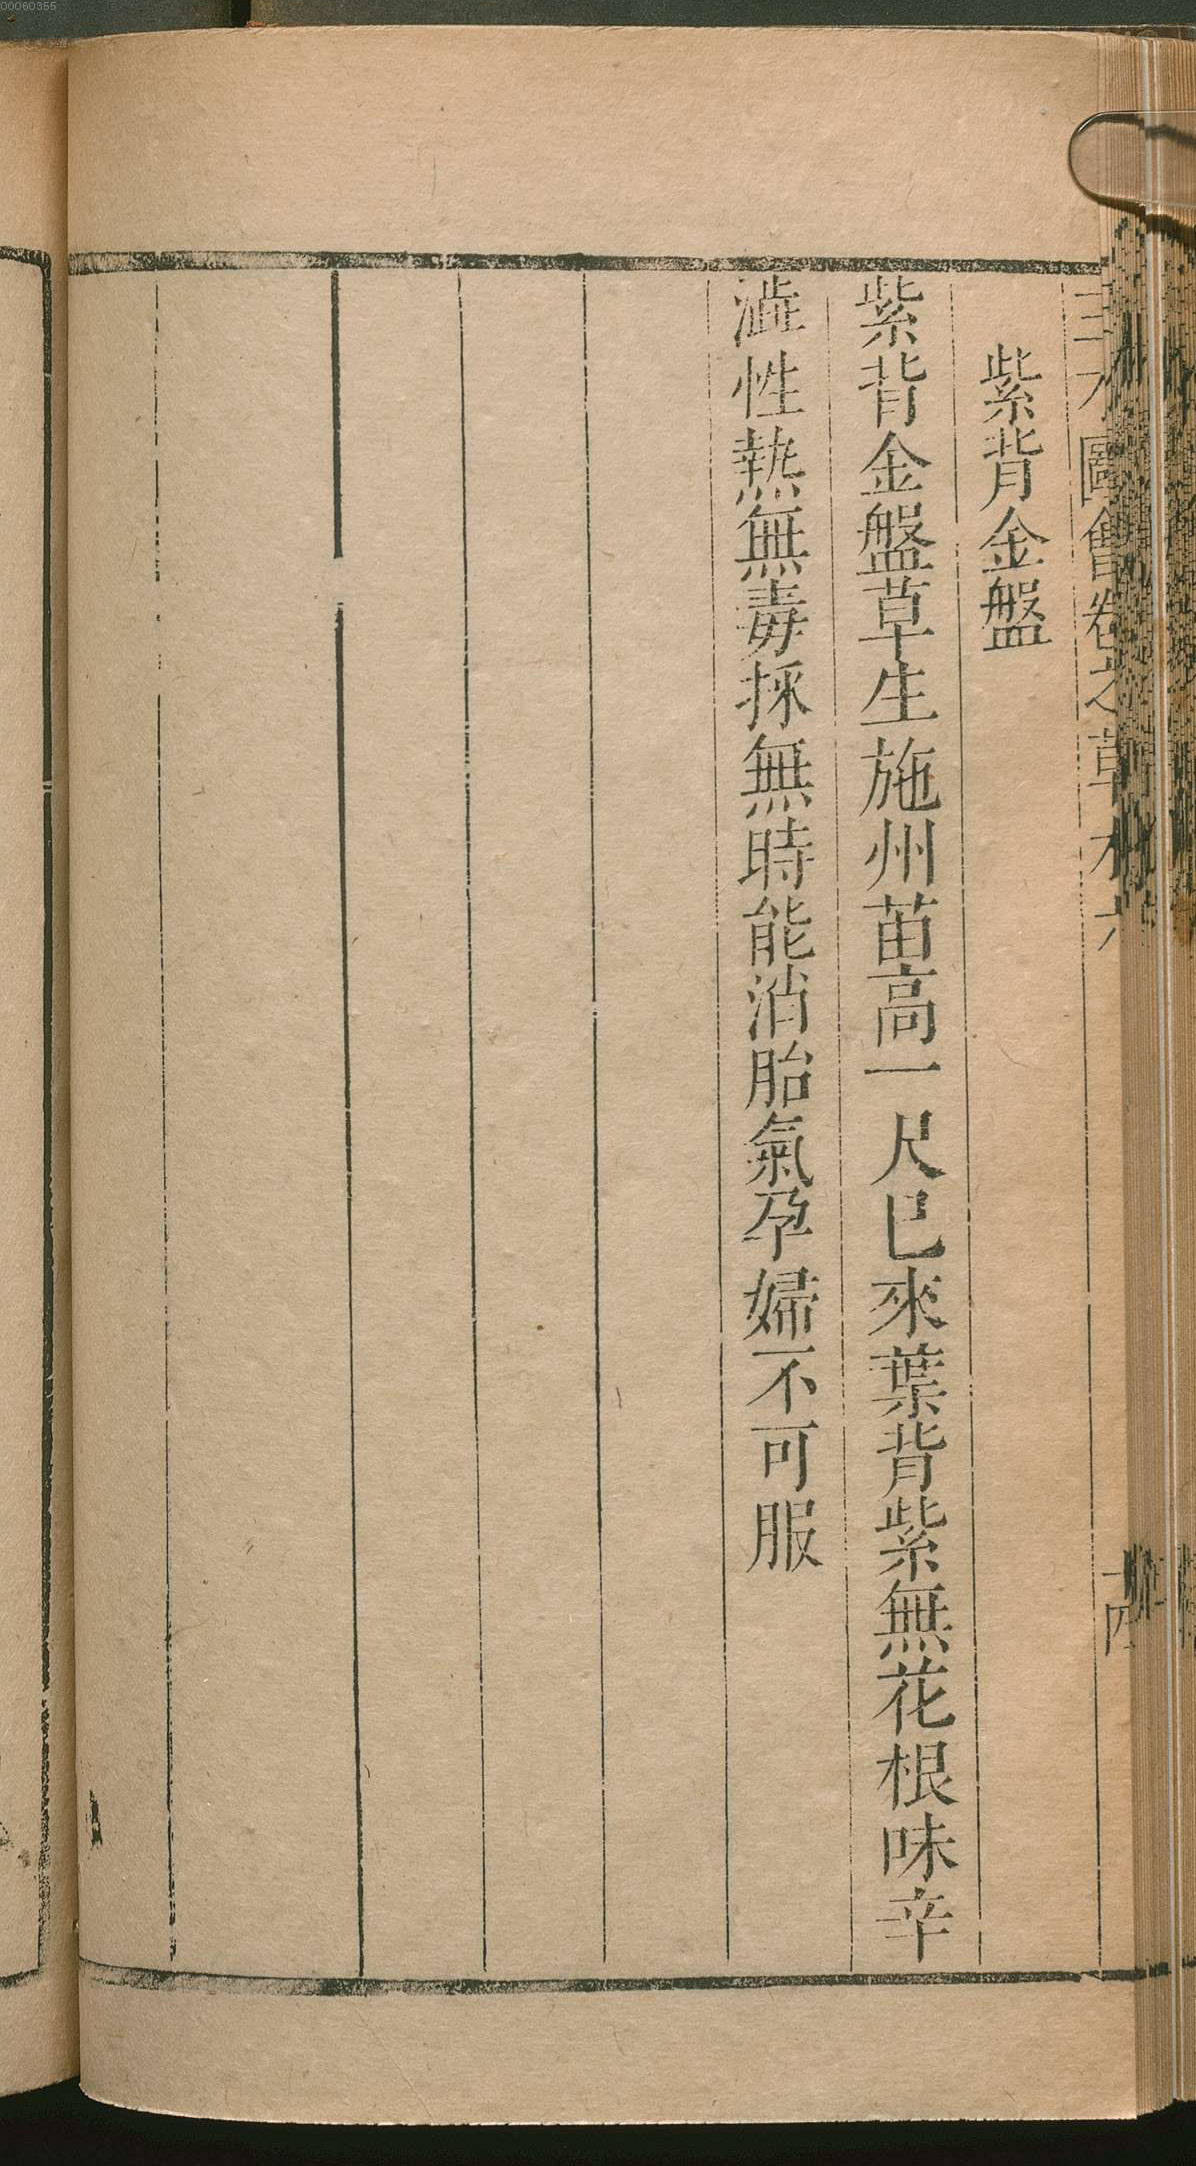 三才圖會卷之草木六 十四
紫背金盤
紫背金盤草生施州苗高一尺巳來葉背紫無花根味辛
澁性熱無毒採無時能消胎氣孕婦不可服
00060355